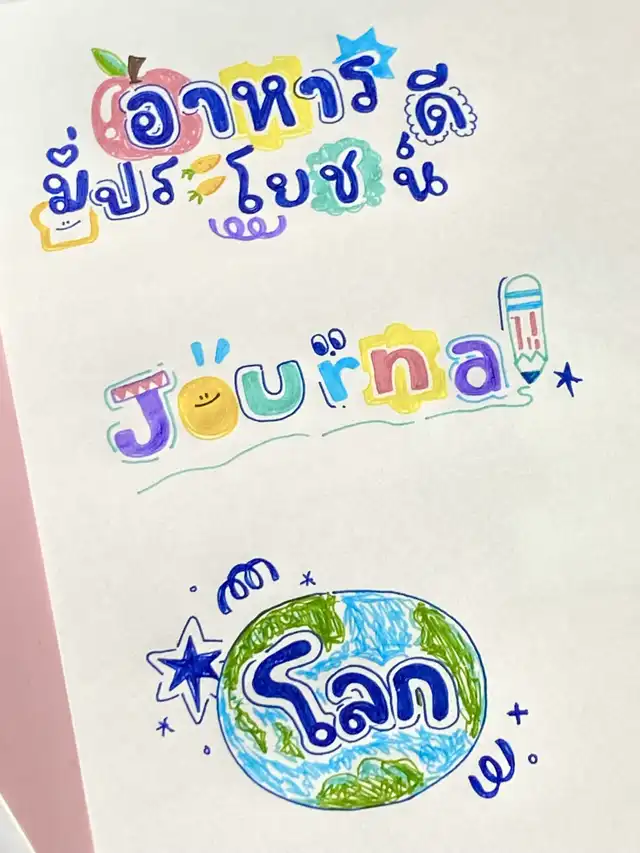 อาหารดี
มีประโยชน์
Journal
โลก